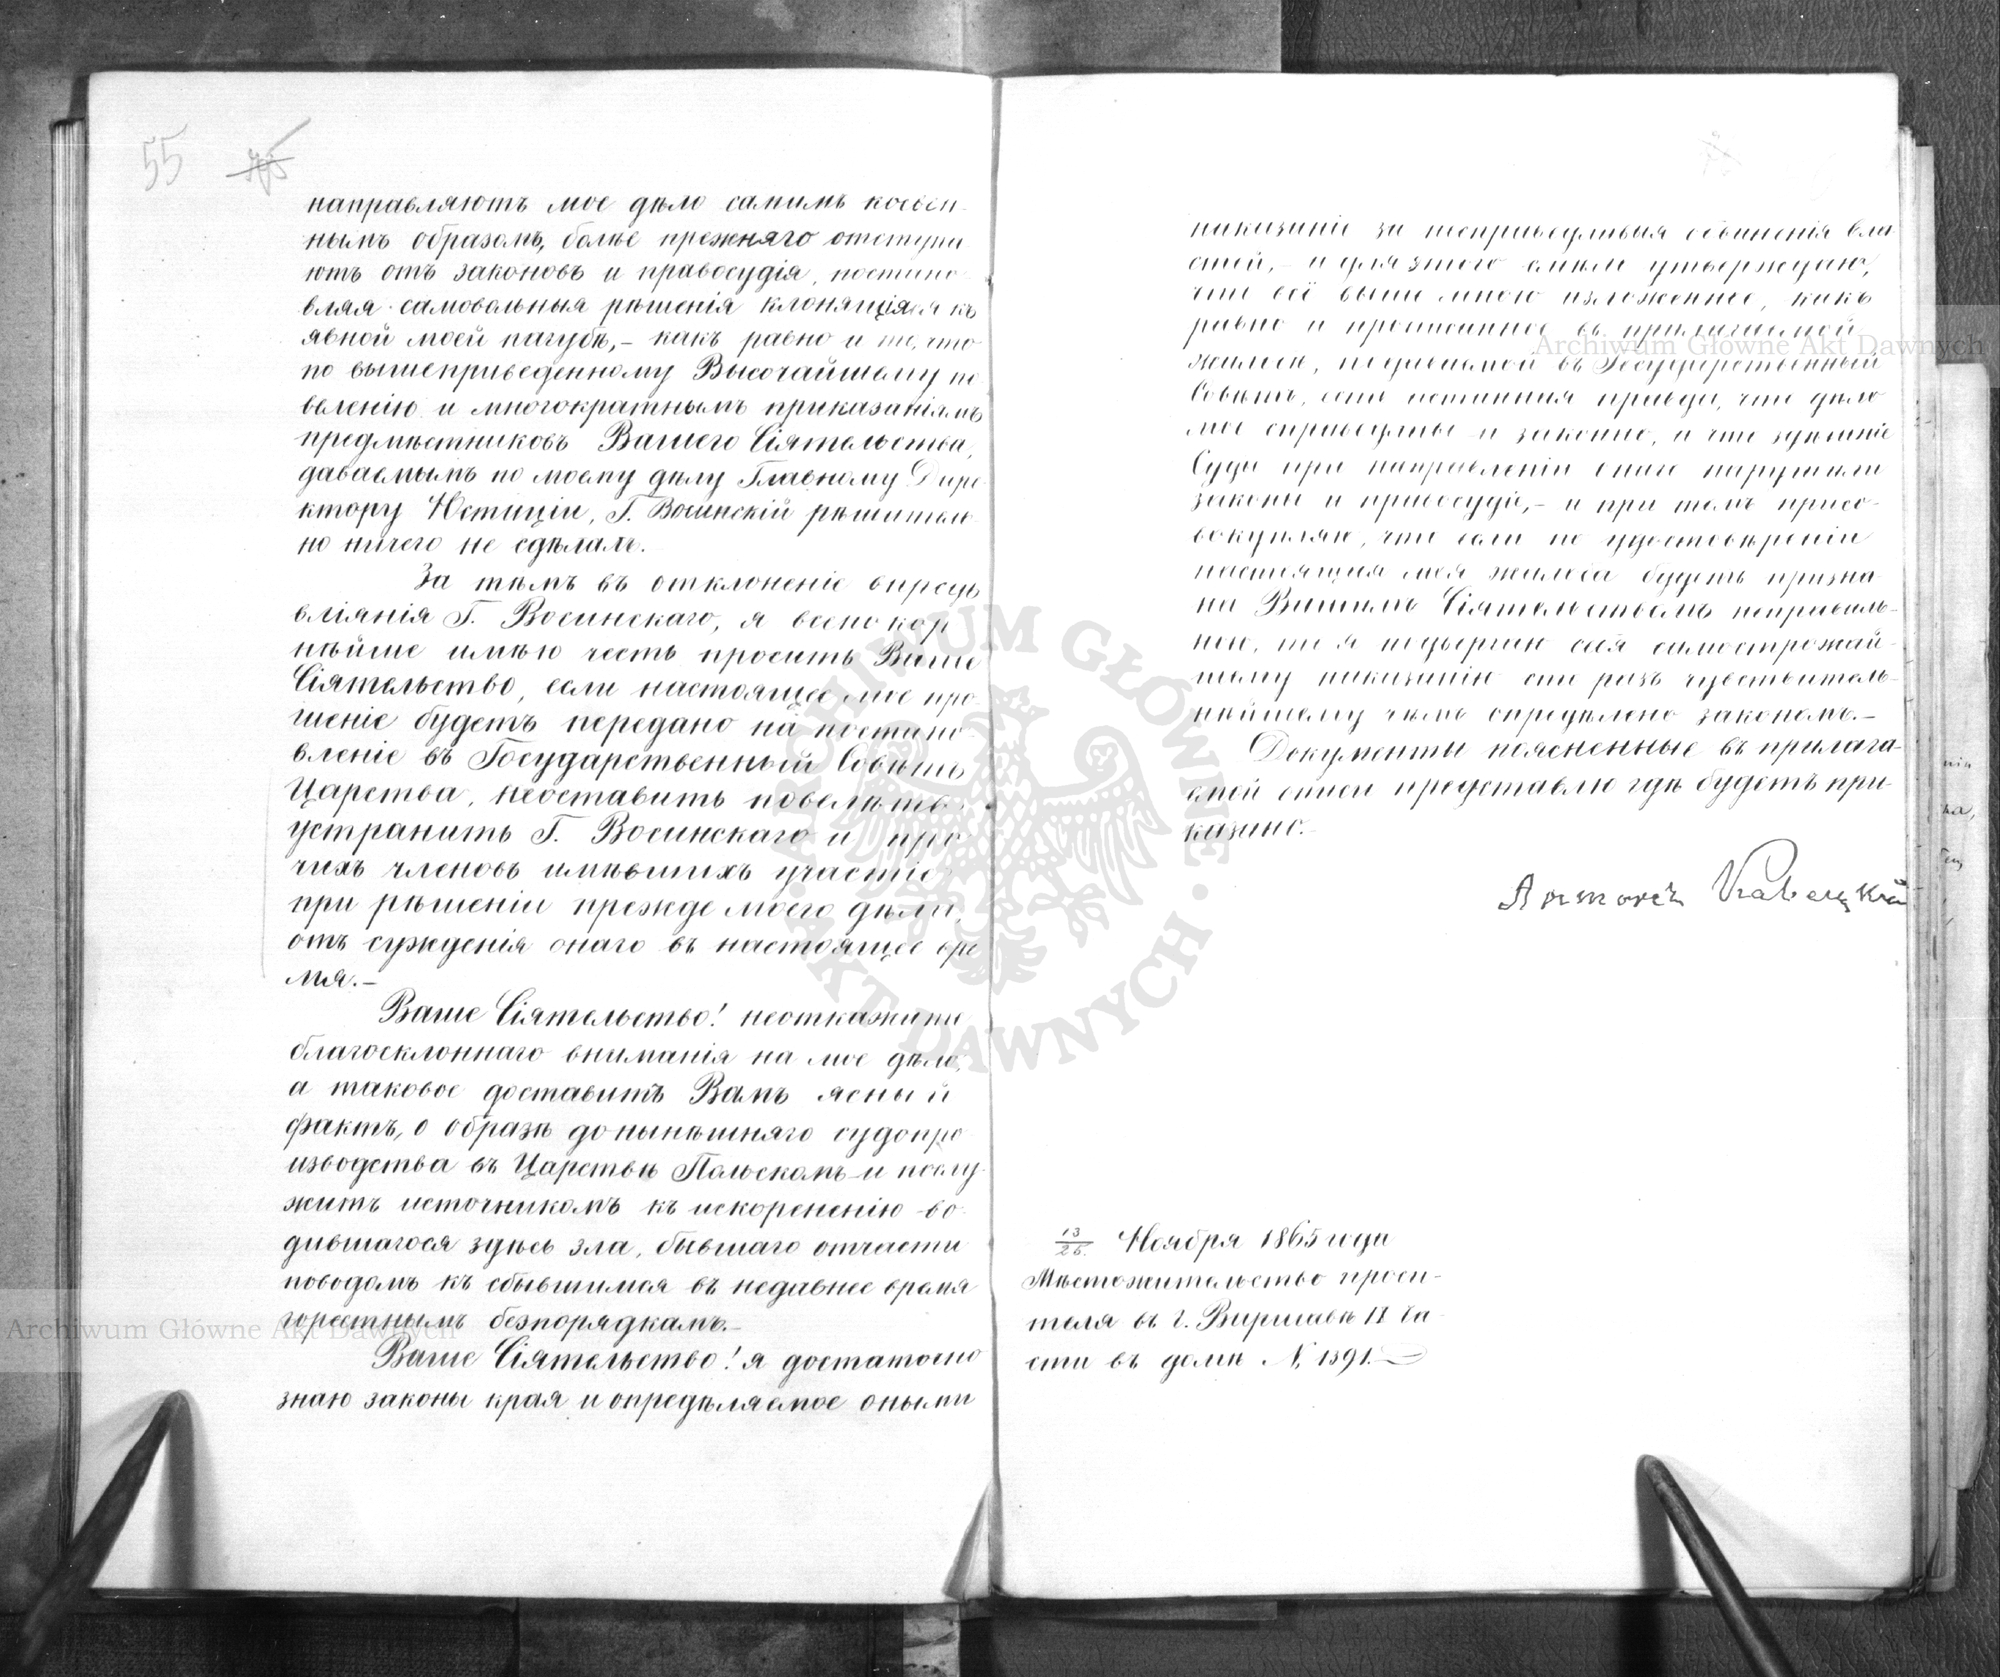 55
направляютъ мое дѣло самимъ косвен-
нымъ образомъ, болѣе прежняго отступа
ютъ отъ законовъ и правосудія, постано-
вляя самовольныя рѣшенія клонящіяся къ
явной моей пагубѣ,- какъ равно и то, что
по вышеприведенному Высочайшему по
велению и многократнымъ приказаніямъ
предмѣстниковъ Вашего Сіятельства,
даваемымъ по моему дѣлу Главному Дире
ктору Юстиціи, Г. Восинскій рѣшитель
но ничего не сдѣлалъ.
За тѣмъ въ отклоненіе впредь
вліянія Г. Восинскаго, я всепокор
нѣйше имѣю честь просить Ваше
Сіятельство, если настоящее мое про-
шеніе будетъ передано на постано-
вленіе въ Государственный Совѣтъ
Царства, неоставить повелѣть
устранить Г. Восинскаго и про
чихъ членовъ имѣвшихъ участіе
при рѣшеніи прежде моего дѣла,
отъ сужденія онаго въ настоящее вре
мя.-
Ваше Сіятельство! неоткажите
благосклоннаго вниманія на мое дѣло,
а таковое доставитъ Вамъ ясный
фактъ, о образѣ донынѣшняго судопро
изводства въ Царствѣ Польскомъ и послу-
житъ источникомъ къ искорененію во-
дившагося здѣсь зла, бывшаго отчасти
поводомъ къ сбывшимся въ недавнее время
горестнымъ безпорядкамъ.-
Ваше Сіятельство! я достаточно
знаю законы края и опредѣляемое оными
наказаніе за неправедливыя обвиненія вла
стей,- и для этого смѣло утверждаю,
что всё выше мною изложенное, какъ
равно и прописанное въ прилагаемой
жалобѣ, подаваемой въ Государственный
Совѣтъ, есть истинная правда, что дѣло
мое справедливо и законно, и что здѣшніе
Суды при направленіи онаго нарушили
законы и правосудіе,- и при томъ присо-
вокупляю, что если по удостовѣреніи
настоящая моя жалоба будетъ призна-
на Вашимъ Сіятельствомъ неправиль-
ною, то я подвергаю себя самострожай-
шему наказанію сто разъ чувствитель-
нѣйшему чѣмъ опредѣлено закономъ.-
Документы поясненные въ прилага-
емой описи представлю гдѣ будетъ при-
казано.-
13/25. Ноября 1865 года
Мѣстожительство проси-
теля въ г. Варшавѣ II ча-
сти въ домѣ № 1391.
ARCHIWUM GŁÓWNE AKT DAWNYCH
Archiwum Główne Akt Dawnych
Archiwum Główne Akt Dawnych